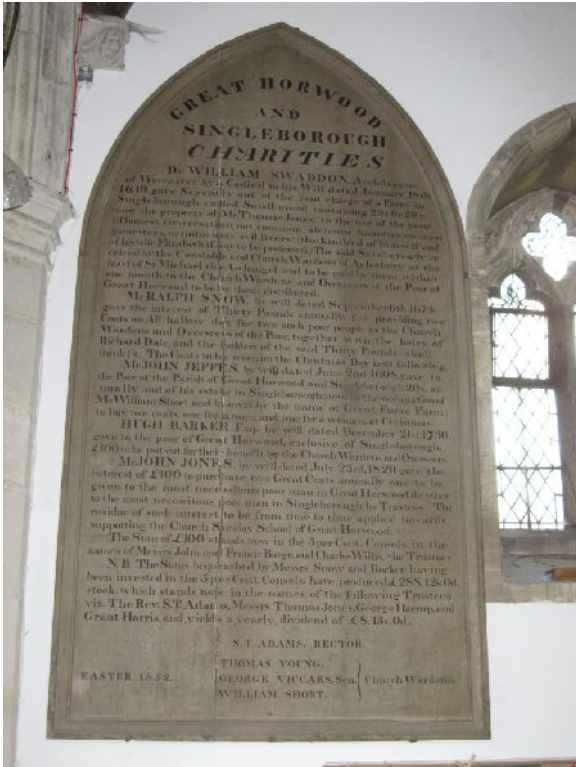 GREAT HORWOOD
AND
SINGLEBOROUGH
CHARITIES
Dr WILLIAM SWADDON, Archdeacon
of Worcester, by a Codicil to his Will dated January 18th
1619, gave yearly out of the rent charge of a Farm in
Singleborough called containing
now the property of Mr Thomas Jones to the use of the poor
of honest conversation, not common alehouse
the kindred of himself and
of his wife Elizabeth if any to be preferred. The said to be yearly re
ceived by the Constable and Church Wardens of at the
feast of St Michael the Archangel and to be paid by them within
one month to the Church Wardens and Overseers of the Poor of
Great Horwood to be by them distributed.
Mr RALPH SNOW, by will dated September 6th 1674,
gave the interest of Thirty Pounds annually, for providing two
Coats on All hallow day for two such poor people as the Church
Wardens and Overseers of the Poor, together with the heirs of
Richard Dale, and the holders of the said Thirty Pounds shall
think fit. The Coats to be worn on the Christmas Day next following.
Mr JOHN JEFFES, by will dated June 2nd 1698, gave to
the Poor of the Parish of Great Horwood and Singleborough 20s. an
nually out of his estate in Singleborough now in the occupation of
Mr William Short and known by the name of Great Freeze Farm
to buy two coats, one for a man, and one for a woman at Christmas.
HUGH BARKER Esqr by will dated December 21st 1736,
gave to the poor of Great Horwood, exclusive of Singleborough,
£100 to be put out for their benefit by the Church Wardens and Overseers.
Mr JOHN JONES, by will dated July 23rd, 1820 gave the
interest of £100 to purchase two Great Coats annually one to be
given to the most necessitous poor man in Great Horwood the other
to the most necessitous poor man in Singleborough by Trustees. The
residue of such interest to be from time to time applied towards
supporting the Church Sunday School of Great Horwood.
The Sum of £100 stands now in the 3 per Cent. Consols, in the
names of Messrs John and Francis Barge, and Charles Willis, the Trustees.
N.B. The Sums bequeathed by Messrs Snow and Barker having
been invested in the 3 per Cent. Consols have produced £288. 12s. 0d.
stock, which stands now in the names of the following Trustees
viz. The Rev. S.T. Adams, Messrs Thomas Jones, George Harrup, and
Grant Harris, and yields a yearly, dividend of £8. 13s. 0d.
S.T. ADAMS, RECTOR.
THOMAS YOUNG,
EASTER, 1852. GEORGE VICCARS, Sen. Church Wardens.
WILLIAM SHORT.